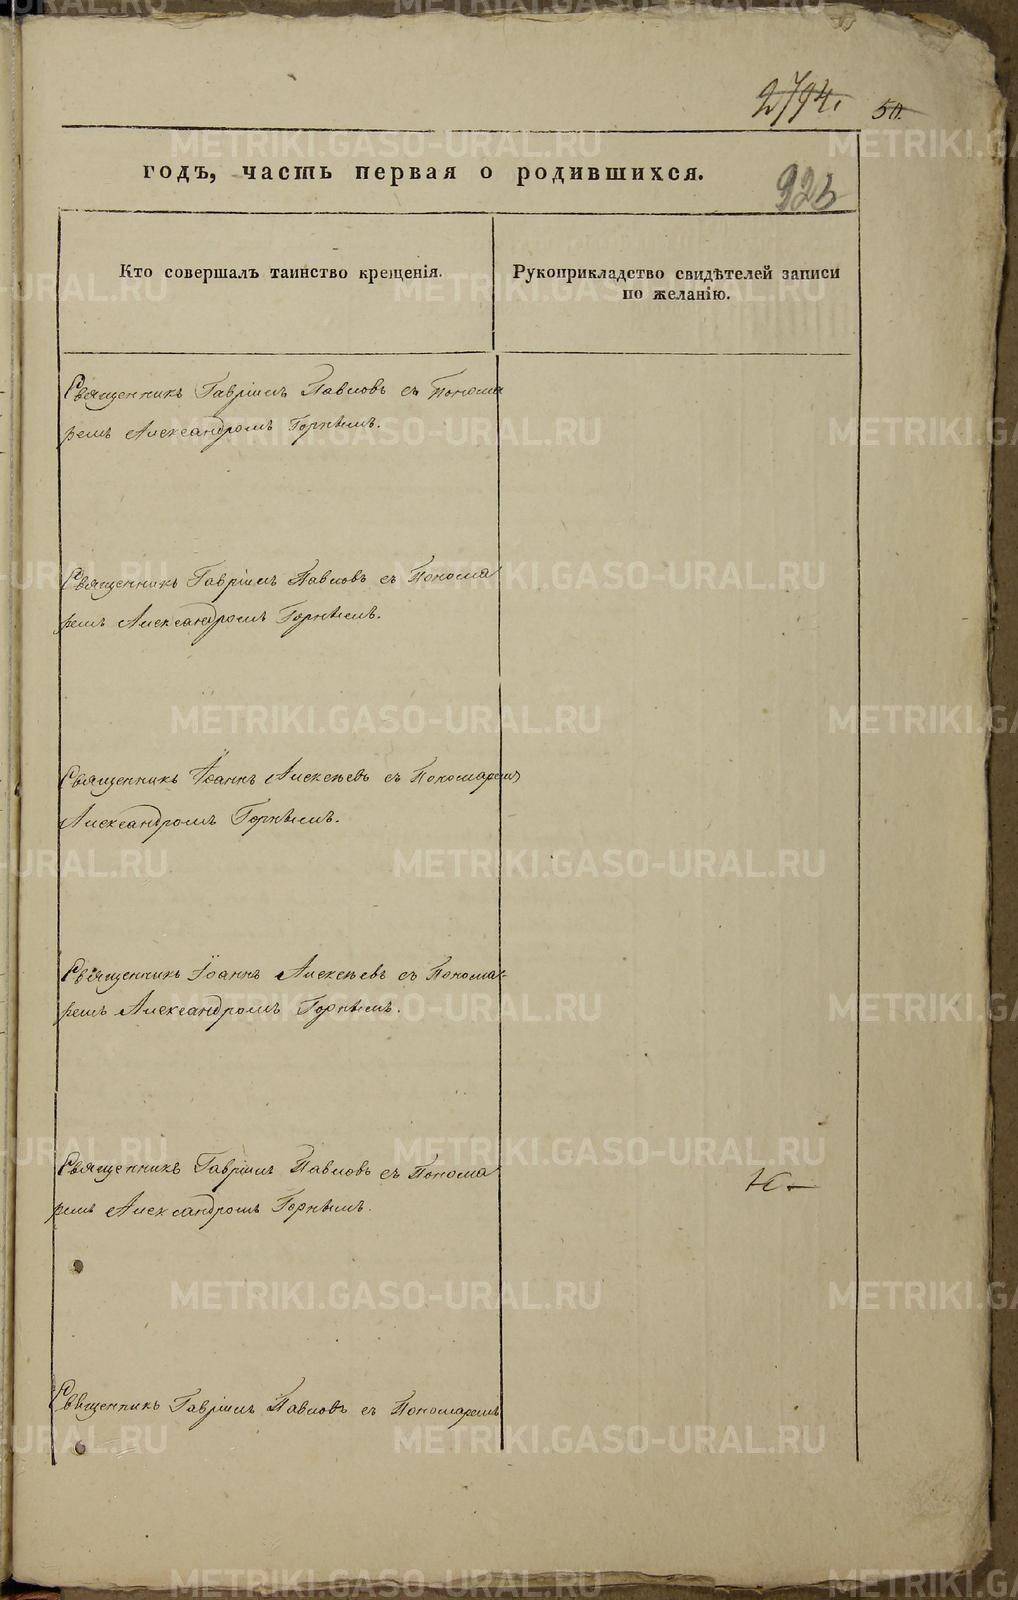 2794.
50.
годъ, часть первая о родившихся.
923
Кто совершалъ таинство крещенія.
Рукоприкладство свидѣтелей записи
по желанію.
Священникъ Гавріилъ Павловъ съ Понома
ремъ Александромъ Горнымъ.
Священникъ Гавріилъ Павловъ съ Понома
ремъ Александромъ Горнымъ.
Священникъ Іоаннъ Алексѣевъ съ Пономаремъ
Александромъ Горнымъ.
Священникъ Іоаннъ Алексѣевъ съ Понома-
ремъ Александромъ Горнымъ.
Священникъ Гавріилъ Павловъ съ Понома
ремъ Александромъ Горнымъ.
Священникъ Гавріилъ Павловъ съ Пономаремъ
METRIKI.GASO-URAL.RU